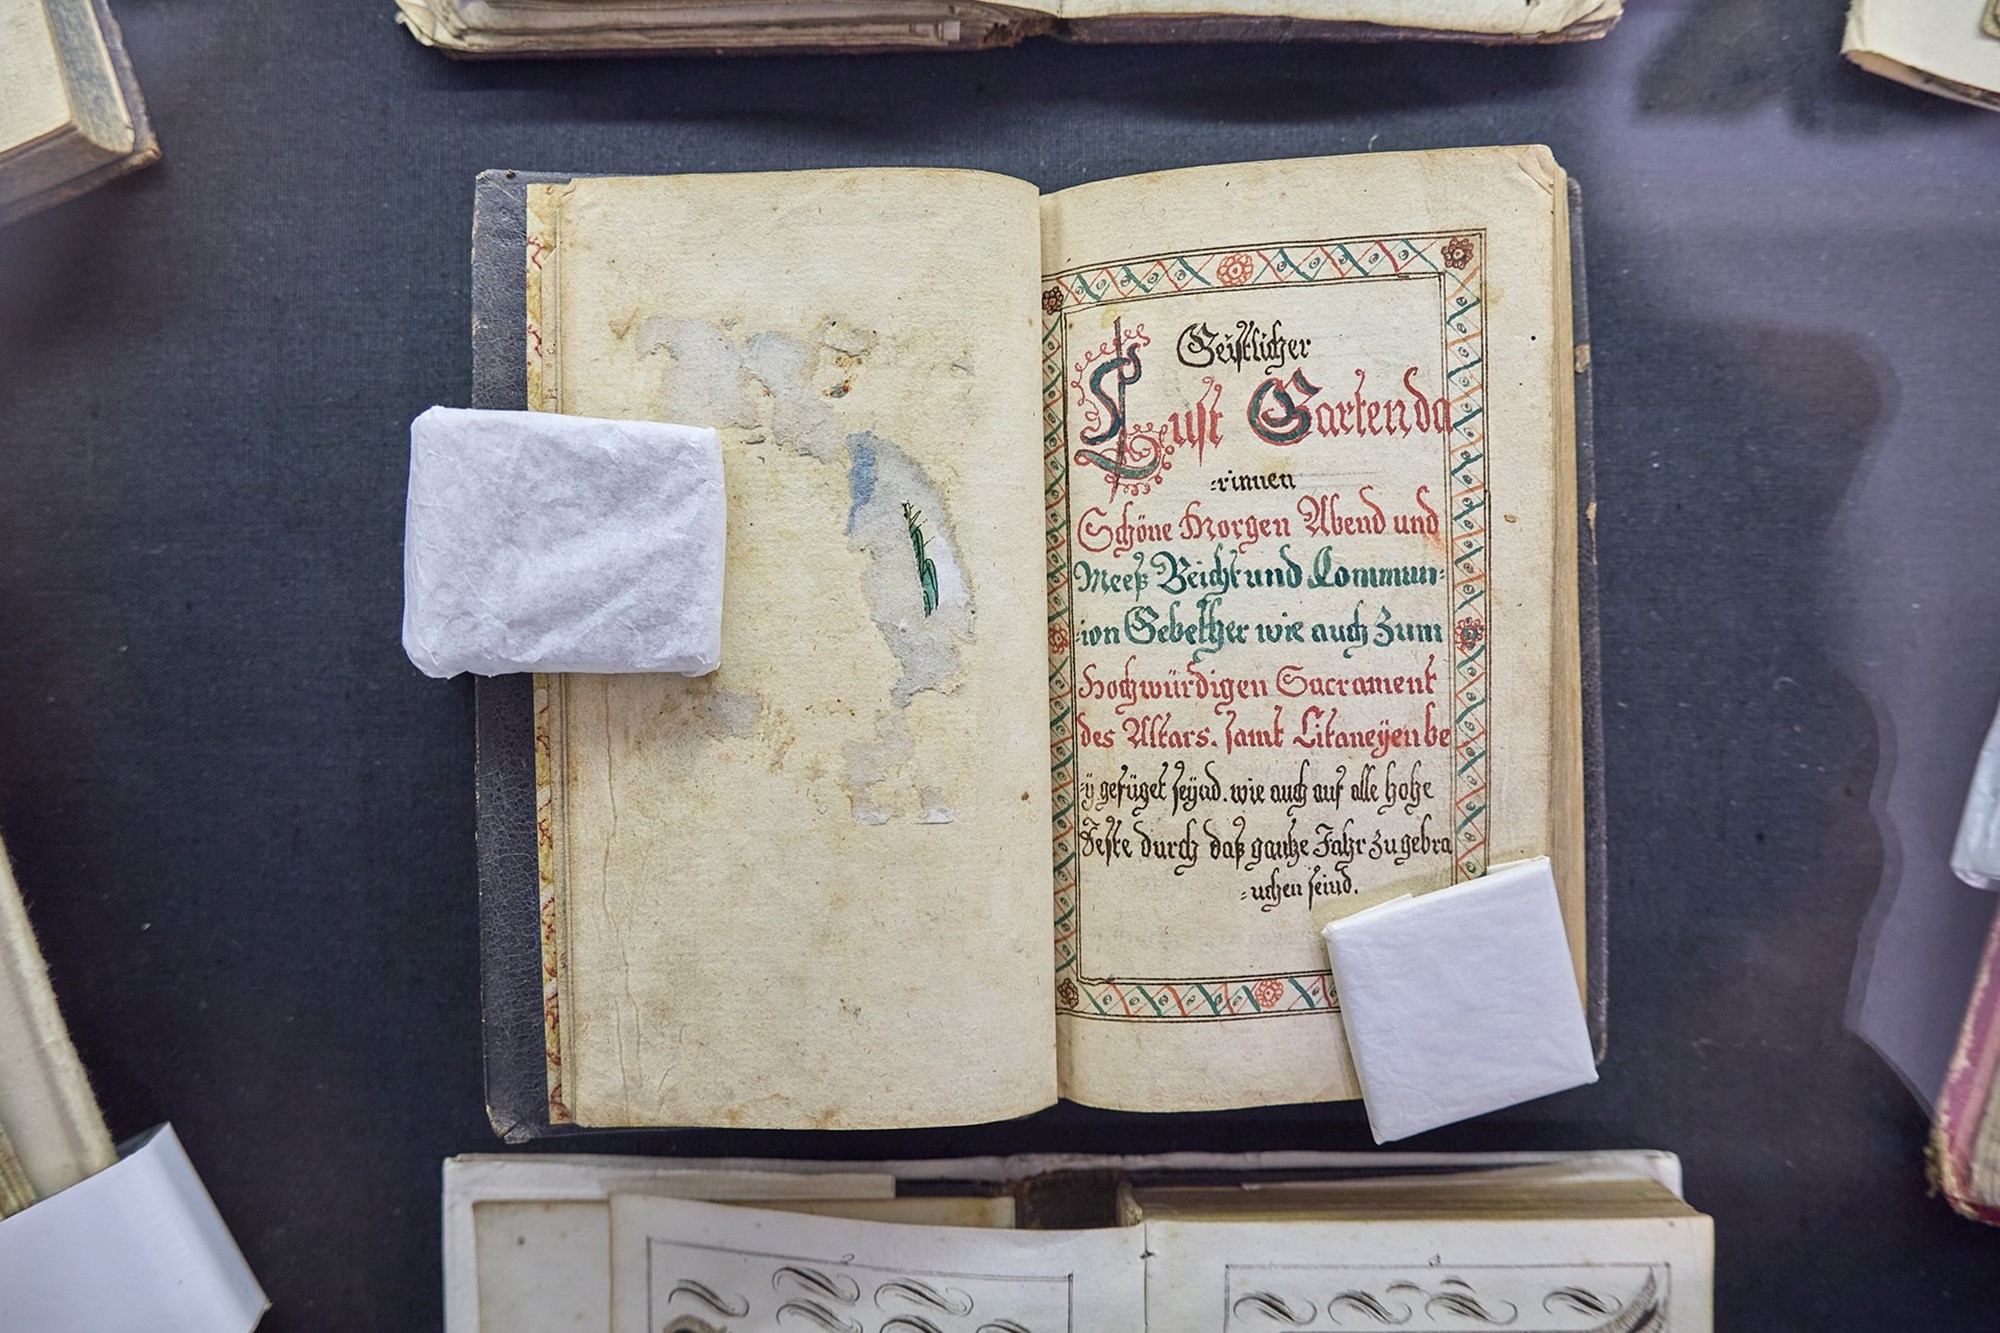 Geistlicher
Lust Garten da
=rinnen
Schöne Morgen Abend und
Meeß Beicht und Commun=
=ion Gebether wie auch Zum
Hochwürdigen Sacrament
des Altars. samt Litaneyen be
=ÿ gefüget seÿnd. wie auch auf alle hohe
Feste durch daß gantze Jahr zu gebra
=uchen seind.